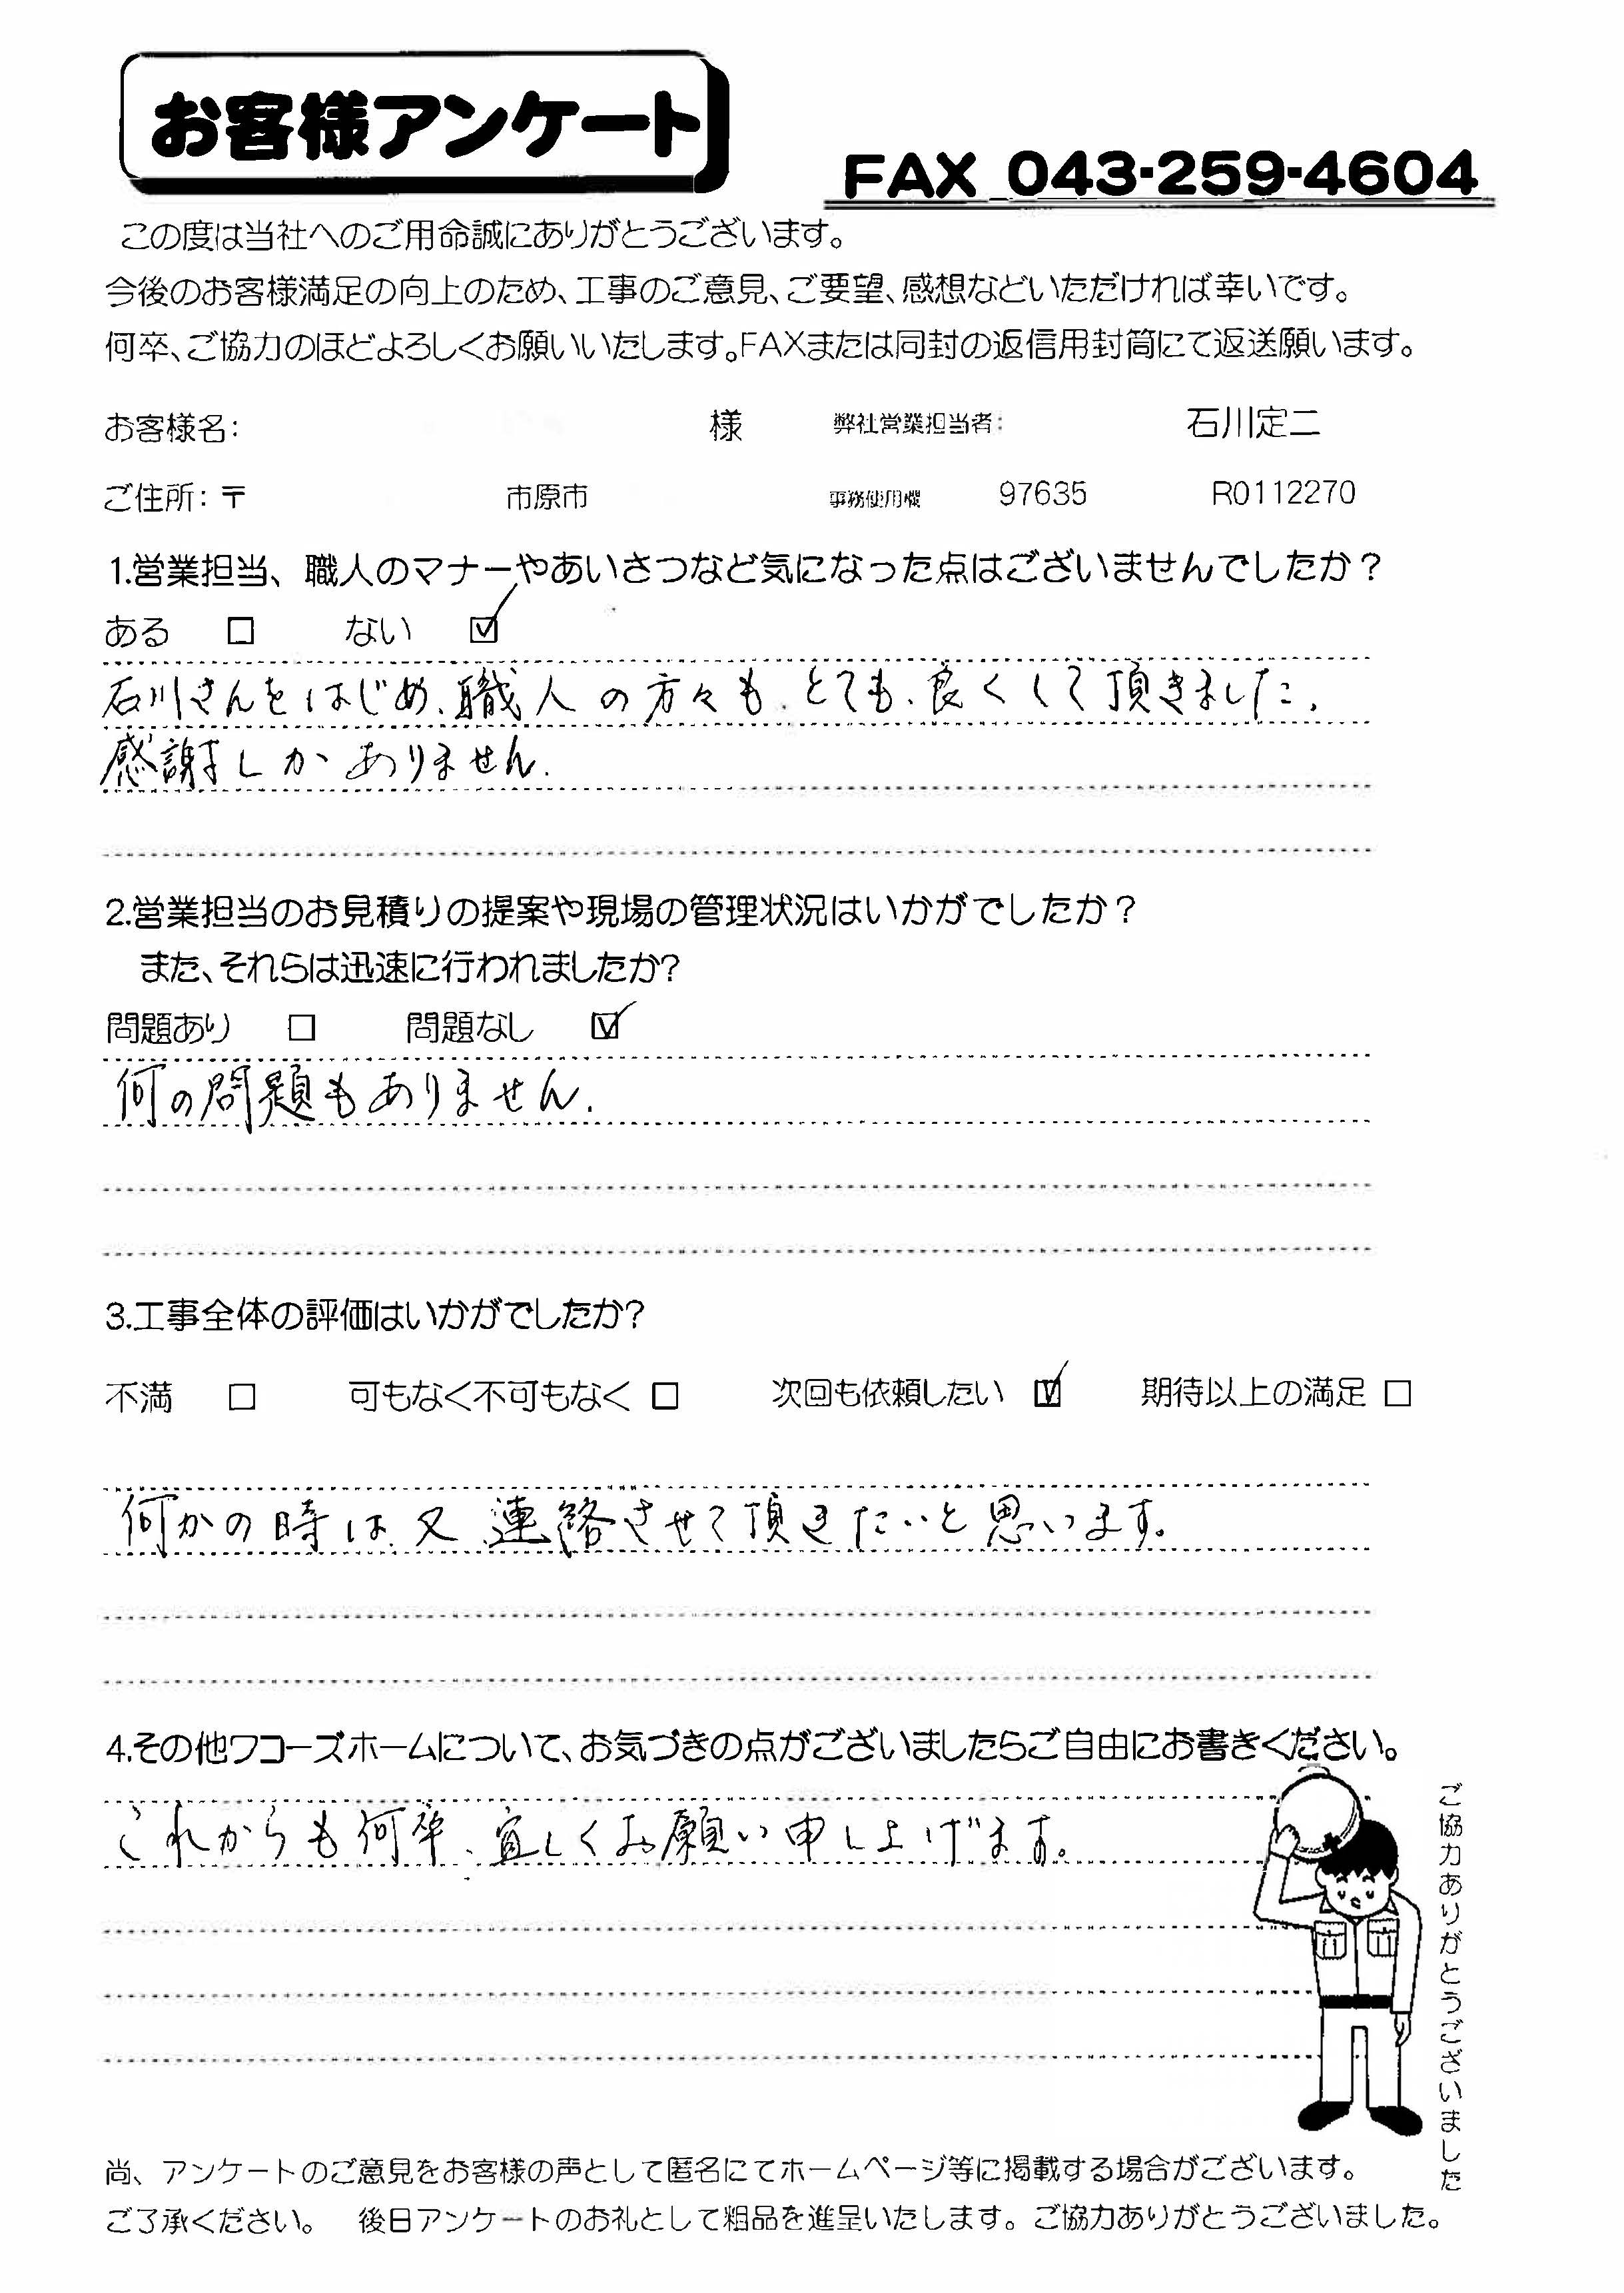 お客様アンケート
FAX 043-259-4604
この度は当社へのご用命誠にありがとうございます。
今後のお客様満足の向上のため、工事のご意見、ご要望、感想などいただければ幸いです。
何卒、ご協力のほどよろしくお願いいたします。FAXまたは同封の返信用封筒にて返送願います。
お客様名: 様 弊社営業担当者: 石川定二
ご住所:〒 市原市 事務使用欄 97635 R0112270
1.営業担当、職人のマナーやあいさつなど気になった点はございませんでしたか？
ある □ ない ☑
石川さんをはじめ、職人の方々も、とても、良くして頂きました。
感謝しかありません。
2.営業担当のお見積りの提案や現場の管理状況はいかがでしたか？
また、それらは迅速に行われましたか?
問題あり □ 問題なし ☑
何の問題もありません。
3.工事全体の評価はいかがでしたか?
不満 □ 可もなく不可もなく □ 次回も依頼したい ☑ 期待以上の満足 □
何かの時は、又、連絡させて頂きたいと思います。
4.その他ワコーズホームについて、お気づきの点がございましたらご自由にお書きください。
これからも何卒、宜しくお願い申し上げます。
ご協力ありがとうございました
尚、アンケートのご意見をお客様の声として匿名にてホームページ等に掲載する場合がございます。
ご了承ください。 後日アンケートのお礼として粗品を進呈いたします。ご協力ありがとうございました。